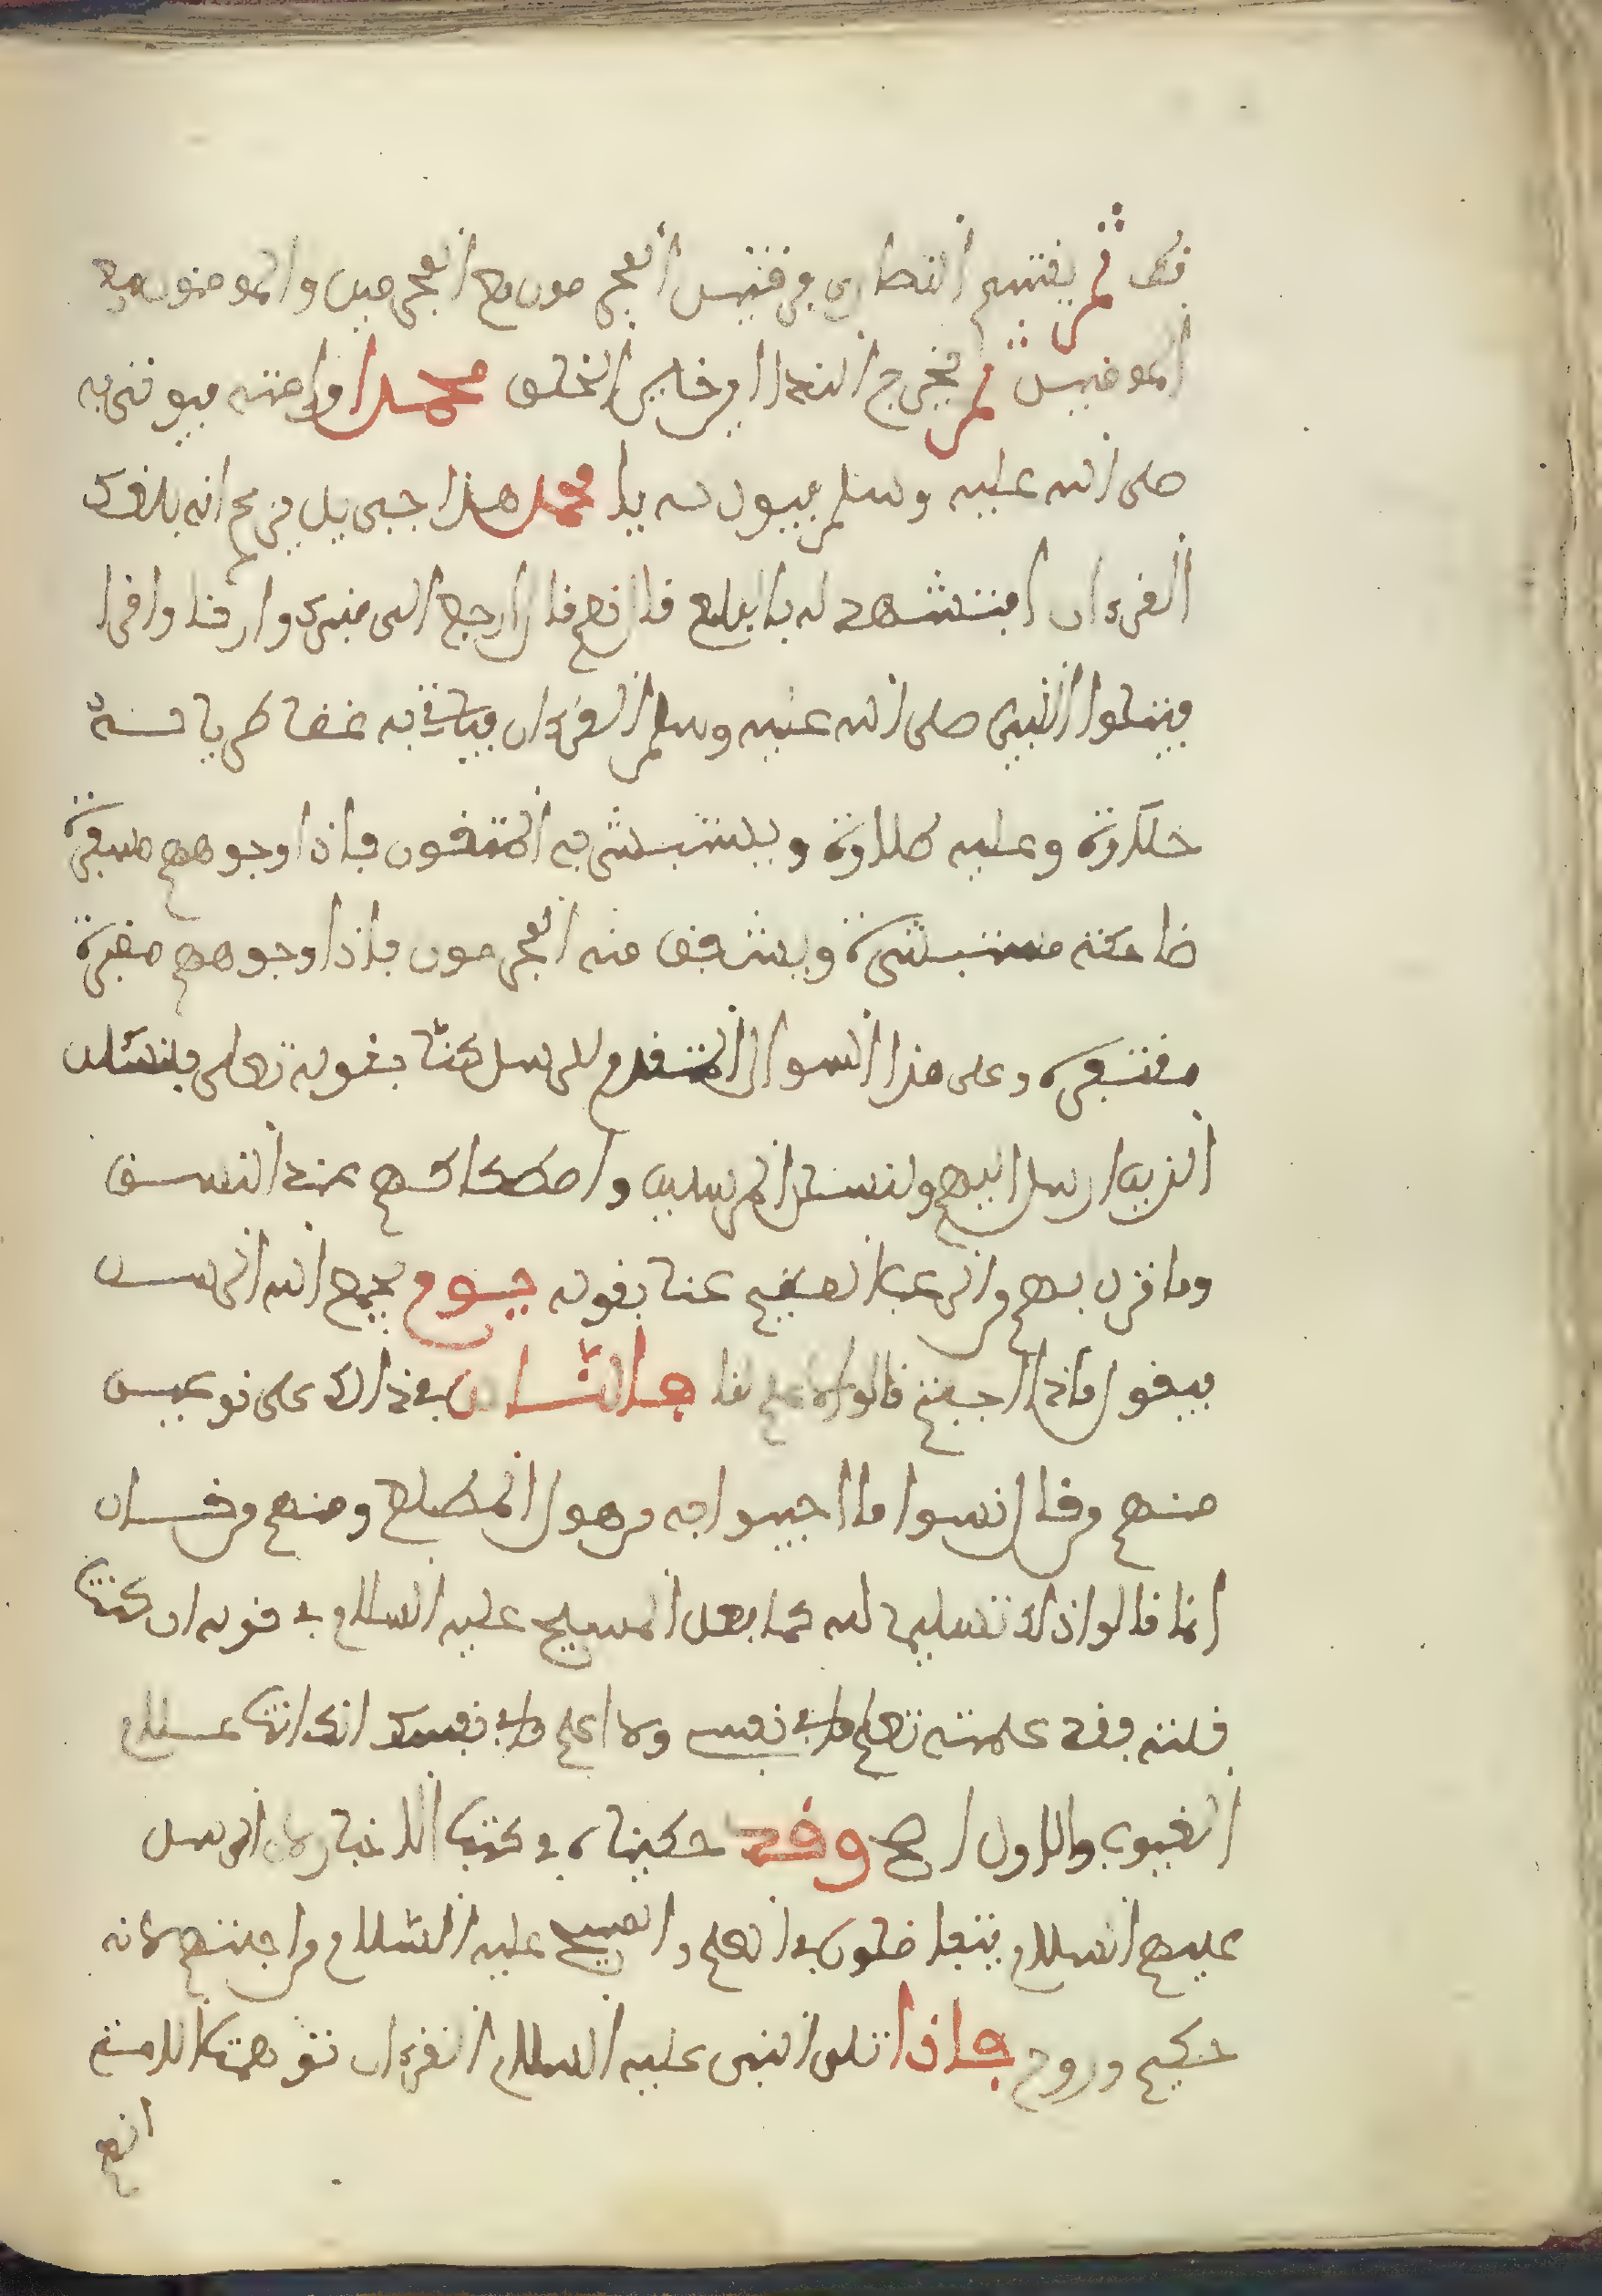 قط ثم يقسم النصارى فرقتين المجرمون مع المجرمين والمومنون مع
المومنين ثم يخرج النداء من قبل الخلق محمدا وامته فيوتى به
صلى الله عليه وسلم فيقول له يا محمد هذا جبريل يزعم انه بلغك
القرءان اتشهد له بالبلاغ قال نعم قال ارجع الى منبرك وارقا واقرا
فيتلوا النبي صلى الله عليه وسلم القرءان فياتي به غضا طريا له
حلاوة وعليه طلاوة ويستبشر به المتقون فاذا وجوههم مسفرة
ضاحكة مستبشرة ويشفق منه المجرمون فاذا وجوههم مغبرة
مقتبرة وعلى هذا السوال المتقدم للرسل هنا بقوله تعلى فلنسئلن
الذين ارسل اليهم ولنسئلن المرسلين واصطكاكهم عند السوق
وما نزل بهم والرعب العظيم عنا بقوله يوم يجمع الله الرسل
فيقول ماذا اجبتم قالوا لا علم لنا فالناس في ذلك على نوعين
منهم من قال نسوا ما اجيبوا به من هول المطلع ومنهم من قال
انما قالوا ذلك تسليما لله كما فعل المسيح عليه السلام في قوله ان كنت
قلته فقد علمته تعلم ما في نفسي ولا اعلم ما في نفسك انك انت علام
الغيوب والاول اصح وقد حكيناه في كتب الاخبار لان الرسل
عليهم السلام يتفاضلون في العلم والمسيح عليه السلام من اجلتهم لانه
حكيم وروح فاذا تلى النبي عليه السلام القرءان توهمت الامة
انهم